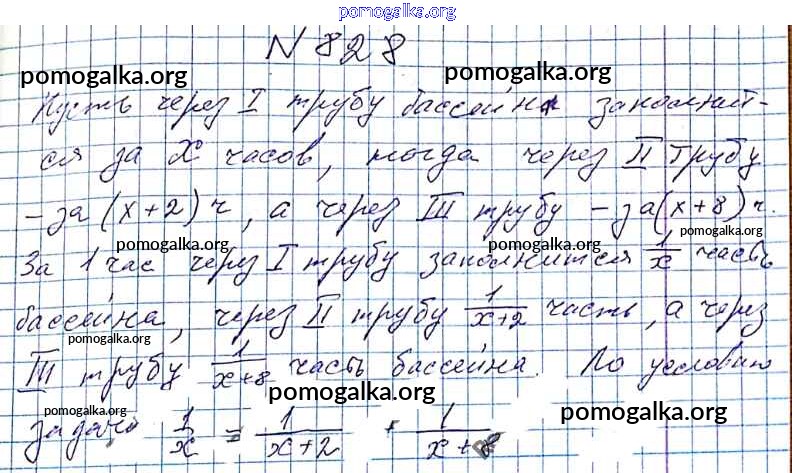 pomogalka.org
N 828
pomogalka.org pomogalka.org
Пусть через I трубу бассейн заполнит-
pomogalka.org pomogalka.org
ся за x часов, тогда через II трубу
- за (x+2) ч, а через III трубу - за (x+8) ч.
pomogalka.org pomogalka.org
За 1 час через I трубу заполнится 1/x часть
бассейна, через II трубу 1/(x+2) часть, а через
III трубу 1/(x+8) часть бассейна. По условию
pomogalka.org
pomogalka.org pomogalka.org
задачи 1/x = 1/(x+2) + 1/(x+8)